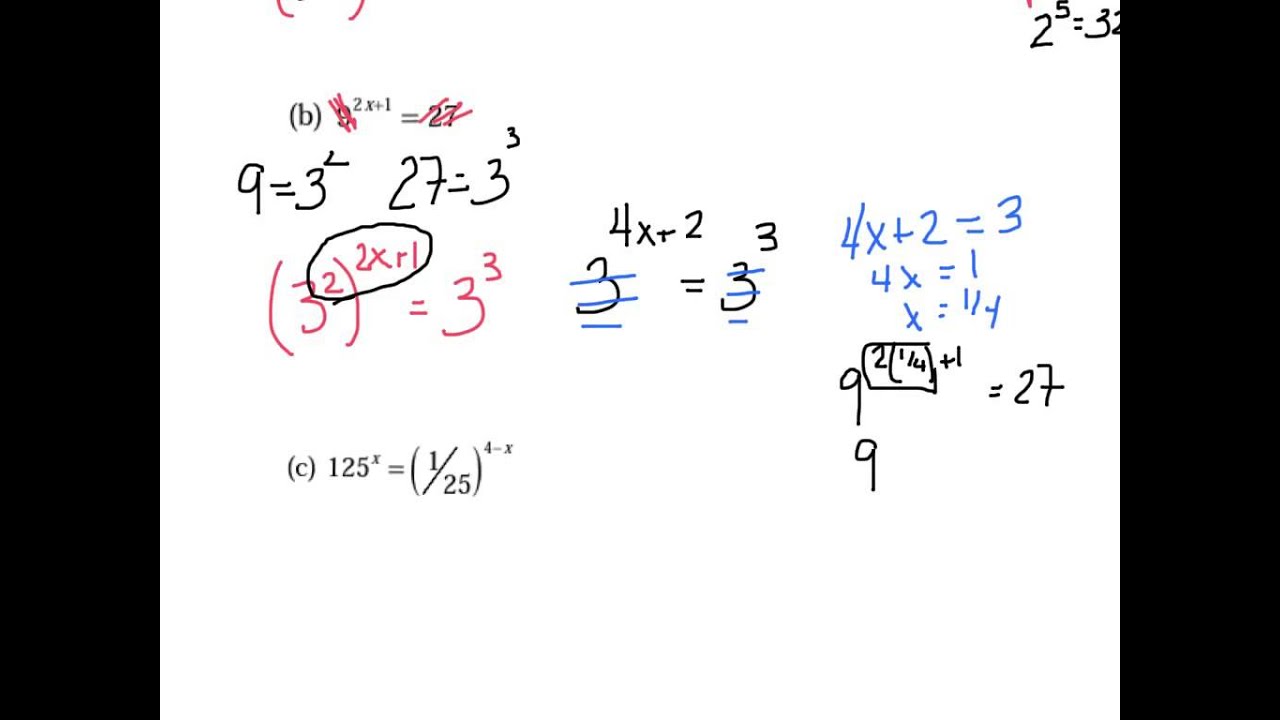 2⁵=32
(b) 9²ˣ⁺¹ = 27
9=3² 27=3³
(3²)²ˣ⁺¹ = 3³
3⁴ˣ⁺² = 3³
4x+2=3
4x=1
x=1/4
9^(2(1/4)+1) = 27
9
(c) 125ˣ = (1/25)⁴⁻ˣ